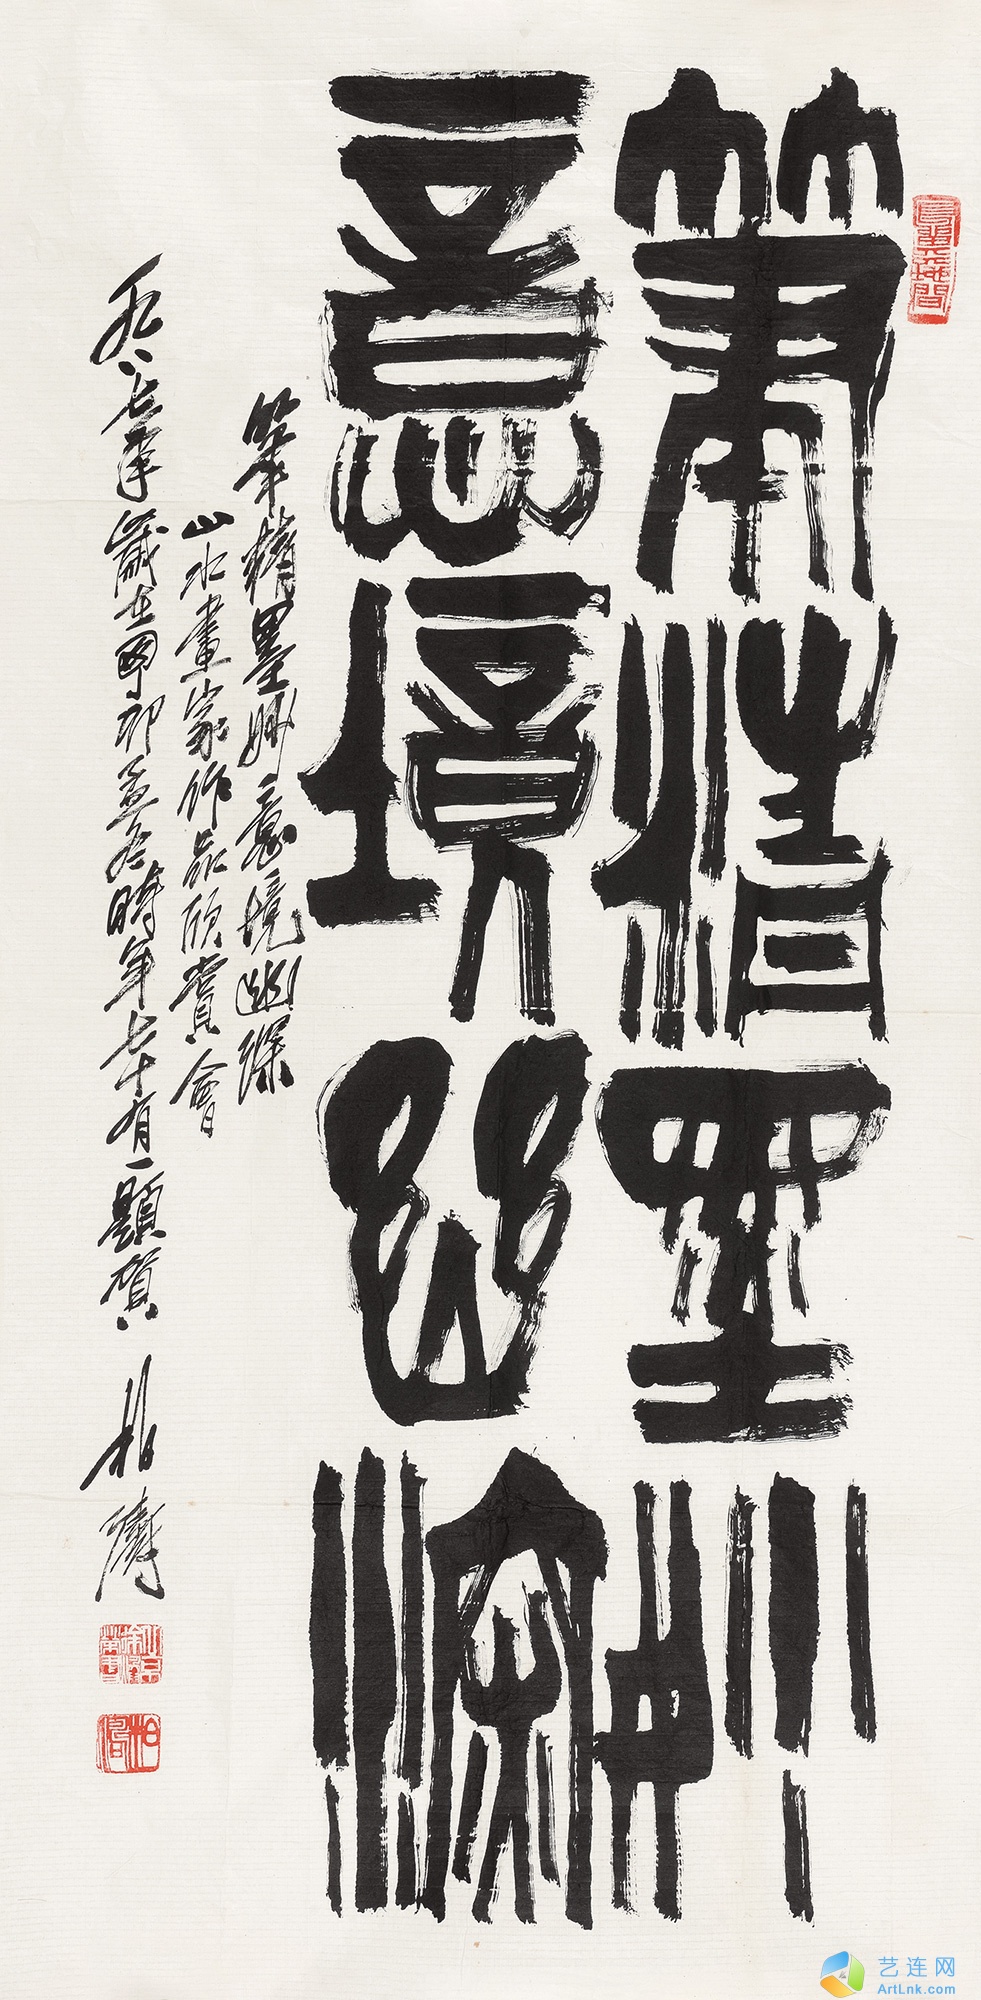 筆精墨妙
意境幽深
筆精墨妙意境幽深
山水畫家作品欣賞會
一九八七年歲在丁卯孟冬時年七十有一題賀 柏濤
柏濤
艺连网
ArtLnk.com